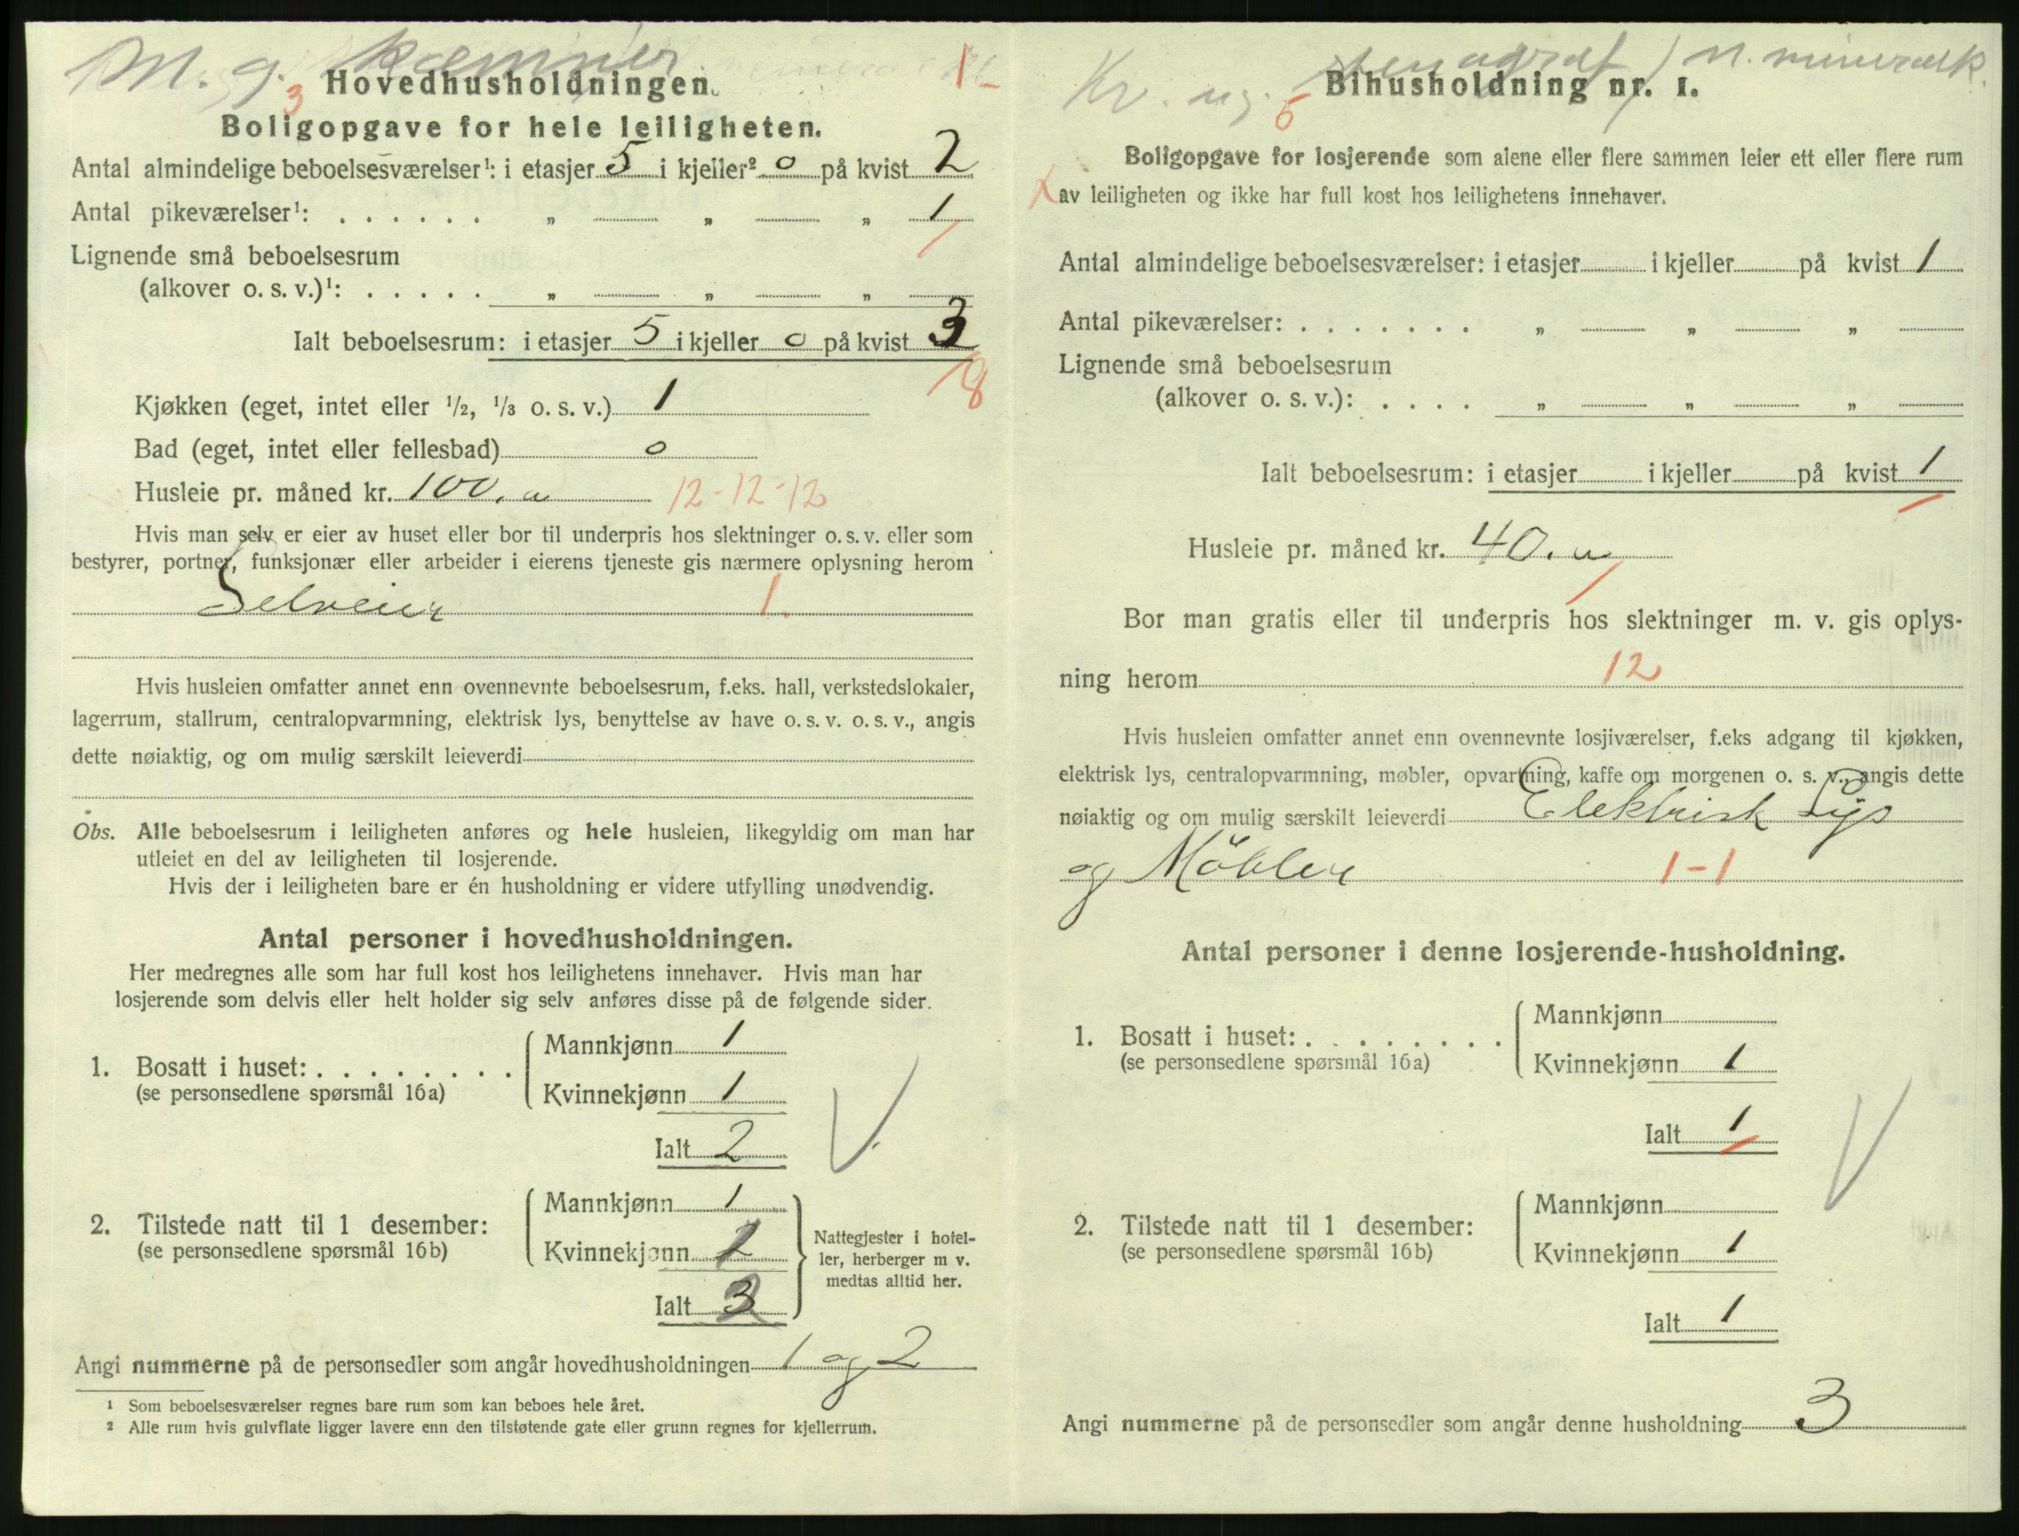 M. g. kæmner
1-
3 Hovedhusholdningen.
Boligopgave for hele leiligheten.
Antal almindelige beboelsesværelser¹: i etasjer 5 i kjeller² 0 på kvist 2
Antal pikeværelser¹: . . . . . . „ „ „ 1
Lignende små beboelsesrum
(alkover o. s. v.)¹: . . . . . „ „ „
Ialt beboelsesrum: i etasjer 5 i kjeller 0 på kvist 3
8
Kjøkken (eget, intet eller ½, ⅓ o. s. v.) 1
Bad (eget, intet eller fellesbad) 0
Husleie pr. måned kr. 100. 12-12-12
Hvis man selv er eier av huset eller bor til underpris hos slektninger o. s. v. eller som
bestyrer, portner, funksjonær eller arbeider i eierens tjeneste gis nærmere oplysning herom
Selveier 1.
Hvis husleien omfatter annet enn ovennevnte beboelsesrum, f.eks. hall, verkstedslokaler,
lagerrum, stallrum, centralopvarmning, elektrisk lys, benyttelse av have o. s. v. o. s. v., angis
dette nøiaktig, og om mulig særskilt leieverdi
Obs. Alle beboelsesrum i leiligheten anføres og hele husleien, likegyldig om man har
utleiet en del av leiligheten til losjerende.
Hvis der i leiligheten bare er én husholdning er videre utfylling unødvendig.
Antal personer i hovedhusholdningen.
Her medregnes alle som har full kost hos leilighetens innehaver. Hvis man har
losjerende som delvis eller helt holder sig selv anføres disse på de følgende sider.
1. Bosatt i huset: . . . . . . . . Mannkjønn 1
(se personsedlene spørsmål 16a) Kvinnekjønn 1
Ialt 2
2. Tilstede natt til 1 desember: Mannkjønn 1
(se personsedlene spørsmål 16b) Kvinnekjønn 2
Ialt 3
Nattegjester i hotel-
ler, herberger m v.
medtas alltid her.
Angi nummerne på de personsedler som angår hovedhusholdningen 1 og 2
¹ Som beboelsesværelser regnes bare rum som kan beboes hele året.
² Alle rum hvis gulvflate ligger lavere enn den tilstøtende gate eller grunn regnes for kjellerrum.
Kv. ug. stenograf / N. mineralk.
5 Bihusholdning nr. 1.
Boligopgave for losjerende som alene eller flere sammen leier ett eller flere rum
av leiligheten og ikke har full kost hos leilighetens innehaver.
Antal almindelige beboelsesværelser: i etasjer i kjeller på kvist 1
Antal pikeværelser: . . . . . . . „ „ „
Lignende små beboelsesrum
(alkover o. s. v.): . . . . „ „ „
Ialt beboelsesrum: i etasjer i kjeller på kvist 1
Husleie pr. måned kr. 40.
Bor man gratis eller til underpris hos slektninger m. v. gis oplys-
ning herom 12
Hvis husleien omfatter annet enn ovennevnte losjiværelser, f.eks adgang til kjøkken,
elektrisk lys, centralopvarmning, møbler, opvartning, kaffe om morgenen o. s. v., angis dette
nøiaktig og om mulig særskilt leieverdi Elektrisk Lys
og Möbler 1-1
Antal personer i denne losjerende-husholdning.
1. Bosatt i huset: . . . . . . . . Mannkjønn
(se personsedlene spørsmål 16a) Kvinnekjønn 1
Ialt 1
2. Tilstede natt til 1 desember: Mannkjønn
(se personsedlene spørsmål 16b) Kvinnekjønn 1
Ialt 1
Angi nummerne på de personsedler som angår denne husholdning 3